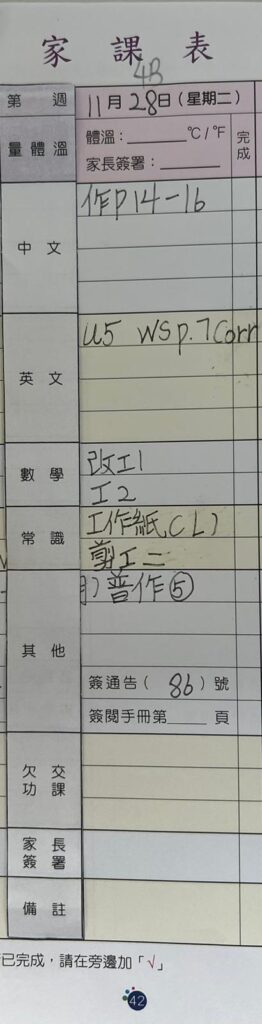 家課表
4B
第 週 11月28日(星期二)
量體溫 體溫:______°C/°F 完成
家長簽署:______
中文 作p14-16
英文 U5 WS p.7 Corr
數學 改工1
工2
常識 工作紙(L)
剪工二
其他 普作⑤
簽通告(86)號
簽閱手冊第____頁
欠交功課
家長簽署
備註
已完成,請在旁邊加「√」
42